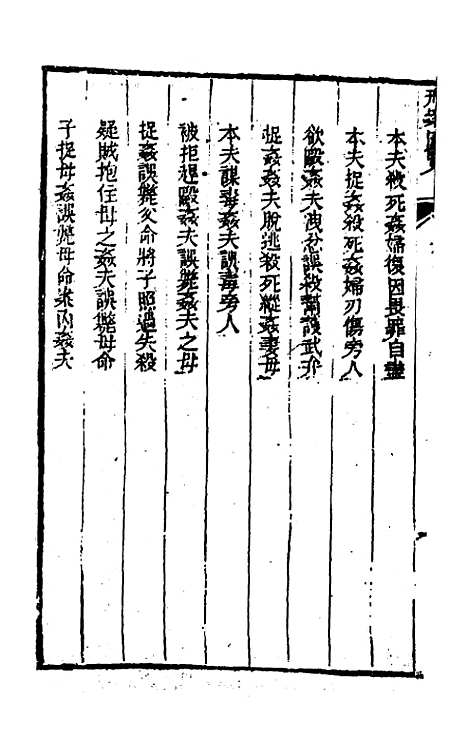 本夫殺死姦婦復因畏罪自盡
本夫捉姦殺死姦婦刃傷旁人
欲毆姦夫洩忿誤殺關護武弁
捉姦姦夫脫逃殺死縱姦妻母
本夫謀毒姦夫誤毒旁人
被拒趕毆姦夫誤斃姦夫之母
捉姦誤斃父命將子照過失殺
疑賊抱住母之姦夫誤斃母命
子捉母姦誤斃母命案內姦夫